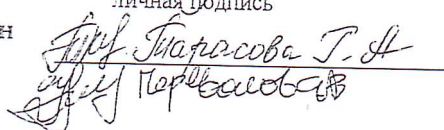 личная подпись
н Тарасова Г. А
Перевалова В